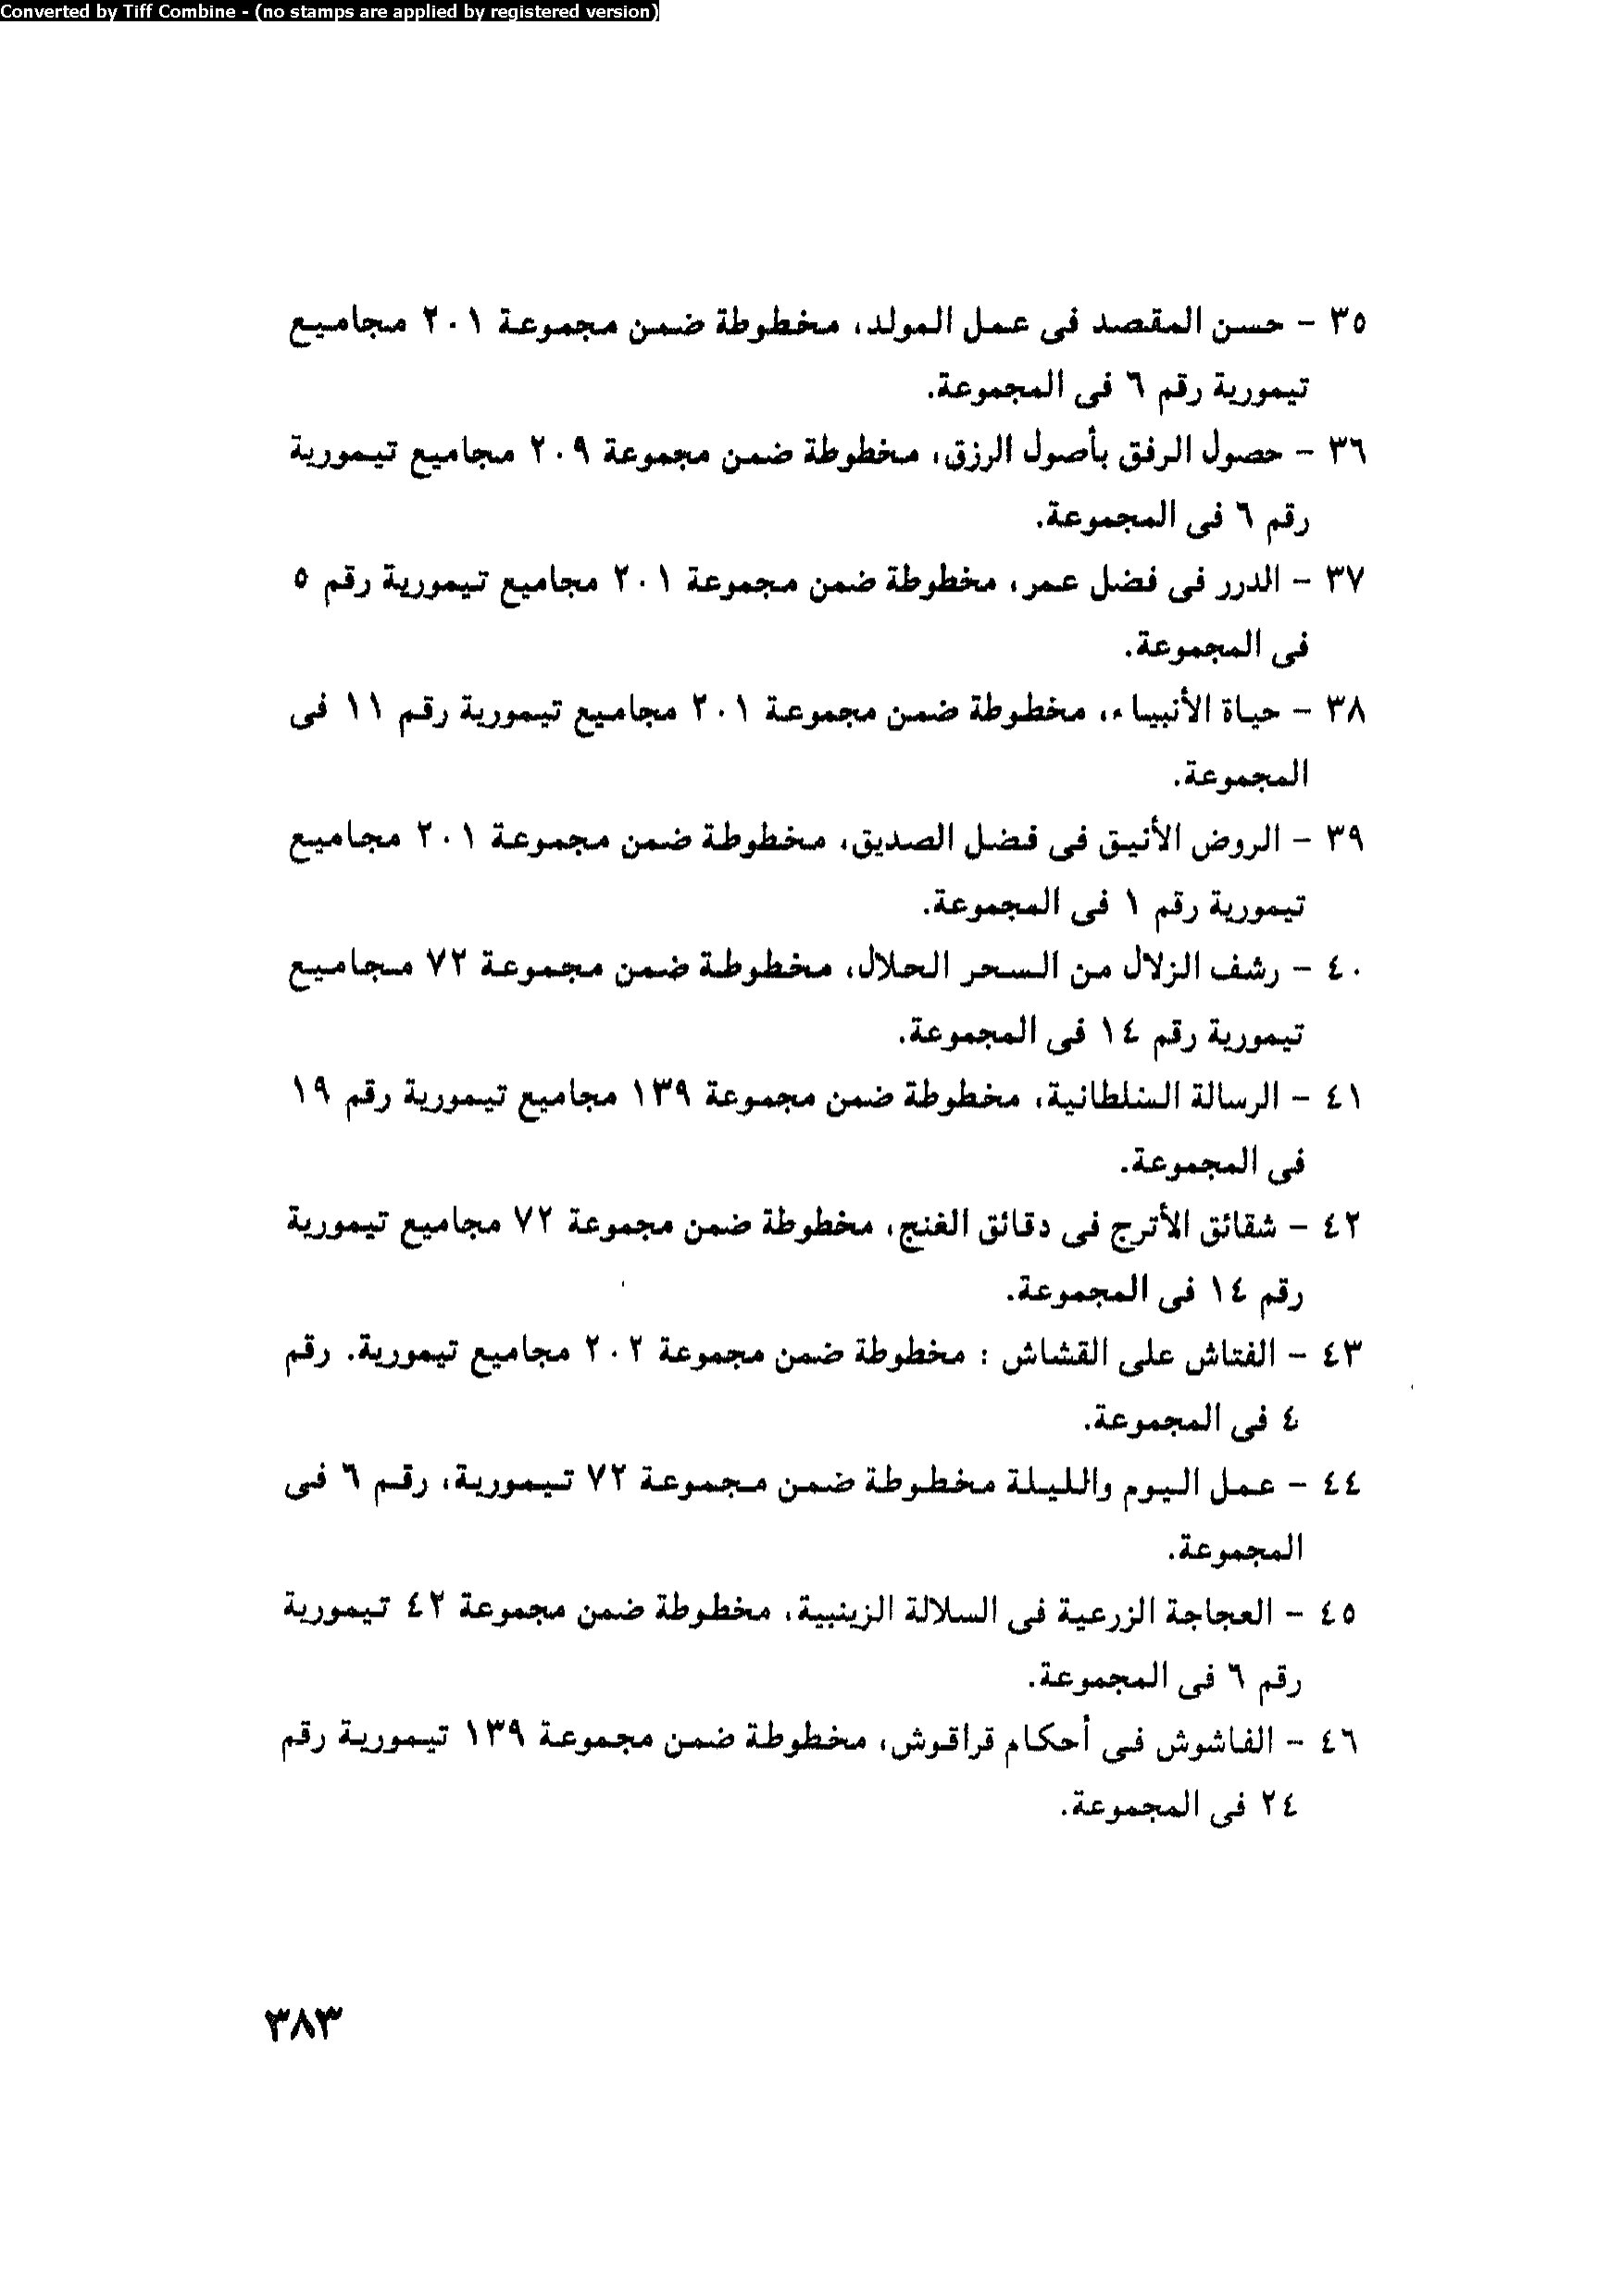 Converted by Tiff Combine - (no stamps are applied by registered version)
٣٥ - حسن المقصد فى عمل المولد، مخطوطة ضمن مجموعة ٢٠١ مجاميع
تيمورية رقم ٦ فى المجموعة.
٣٦ - حصول الرفق بأصول الرزق، مخطوطة ضمن مجموعة ٢٠٩ مجاميع تيمورية
رقم ٦ فى المجموعة.
٣٧ - الدرر فى فضل عمر، مخطوطة ضمن مجموعة ٢٠١ مجاميع تيمورية رقم ٥
فى المجموعة.
٣٨ - حياة الأنبياء، مخطوطة ضمن مجموعة ٢٠١ مجاميع تيمورية رقم ١١ فى
المجموعة.
٣٩ - الروض الأنيق فى فضل الصديق، مخطوطة ضمن مجموعة ٢٠١ مجاميع
تيمورية رقم ١ فى المجموعة.
٤٠ - رشف الزلال من السحر الحلال، مخطوطة ضمن مجموعة ٧٢ مجاميع
تيمورية رقم ١٤ فى المجموعة.
٤١ - الرسالة السلطانية، مخطوطة ضمن مجموعة ١٣٩ مجاميع تيمورية رقم ١٩
فى المجموعة.
٤٢ - شقائق الأترج فى دقائق الغنج، مخطوطة ضمن مجموعة ٧٢ مجاميع تيمورية
رقم ١٤ فى المجموعة.
٤٣ - الفتاش على القشاش : مخطوطة ضمن مجموعة ٢٠٢ مجاميع تيمورية. رقم
٤ فى المجموعة.
٤٤ - عمل اليوم والليلة مخطوطة ضمن مجموعة ٧٢ تيمورية، رقم ٦ فى
المجموعة.
٤٥ - العجاجة الزرعية فى السلالة الزينبية، مخطوطة ضمن مجموعة ٤٢ تيمورية
رقم ٦ فى المجموعة.
٤٦ - الفاشوش فى أحكام قراقوش، مخطوطة ضمن مجموعة ١٣٩ تيمورية رقم
٢٤ فى المجموعة.
٣٨٣